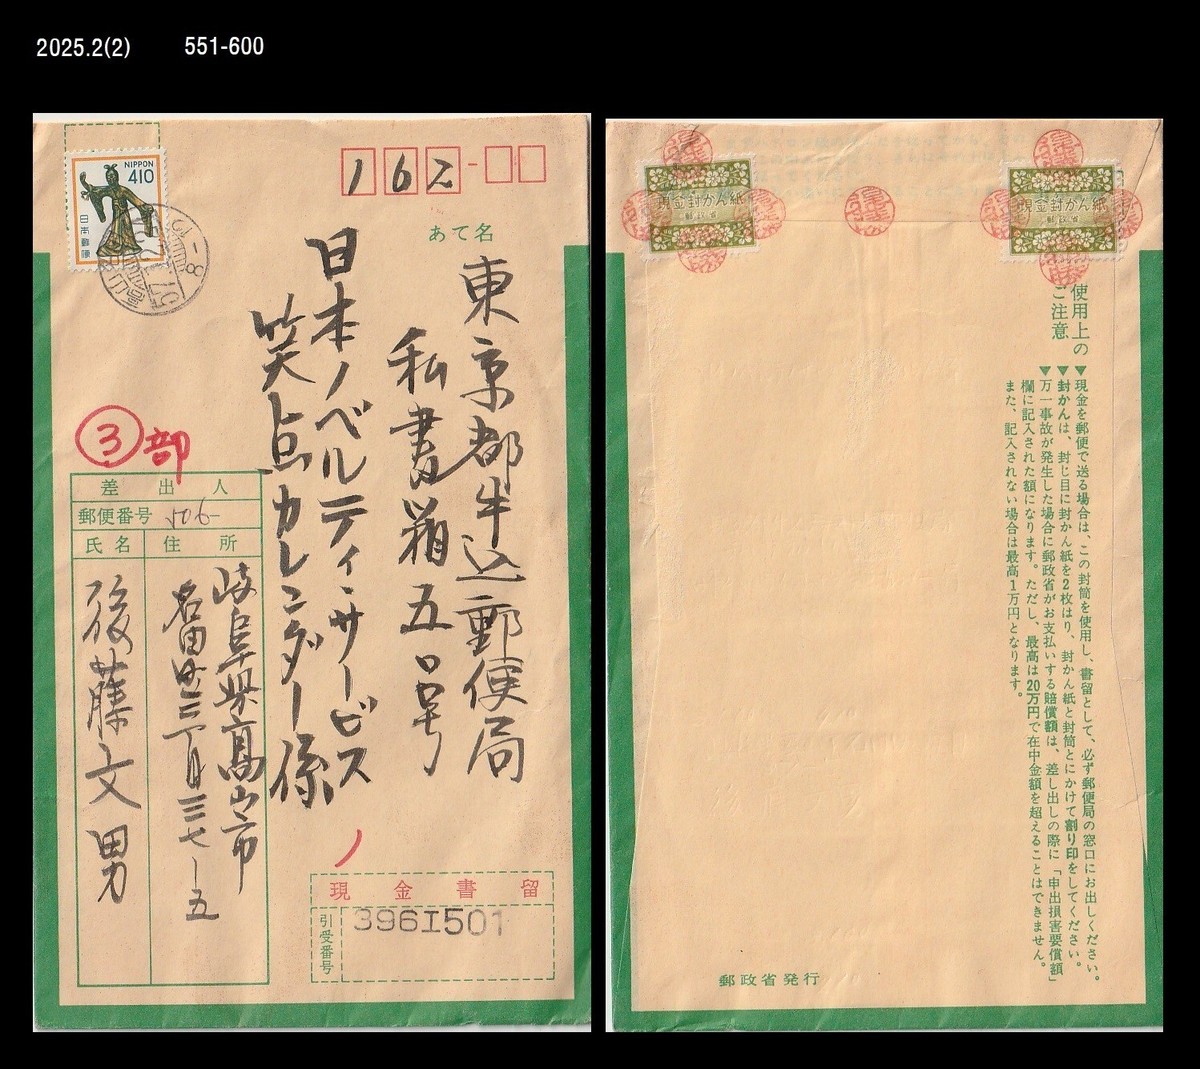 2025.2(2) 551-600
NIPPON
410
日本郵便
57
162
あて名
東京都牛込郵便局
私書箱五〇号
日本ノベルティ・サービス
笑点カレンダー係
③部
差出人
郵便番号 506
氏名 住所
岐阜県高山市
名田町三丁目三三七-五
後藤文男
現金書留
引受番号
396I501
現金封かん紙
郵政省
現金封かん紙
郵政省
使用上の
ご注意
▼現金を郵便で送る場合は、この封筒を使用し、書留として、必ず郵便局の窓口にお出しください。
▼封かんは、封じ目に封かん紙を2枚はり、封かん紙と封筒とにかけて割り印をしてください。
▼万一事故が発生した場合に郵政省がお支払いする賠償額は、差し出しの際に「申出損害要償額」
欄に記入された額になります。ただし、最高は20万円で在中金額を超えることはできません。
また、記入されない場合は最高1万円となります。
郵政省発行